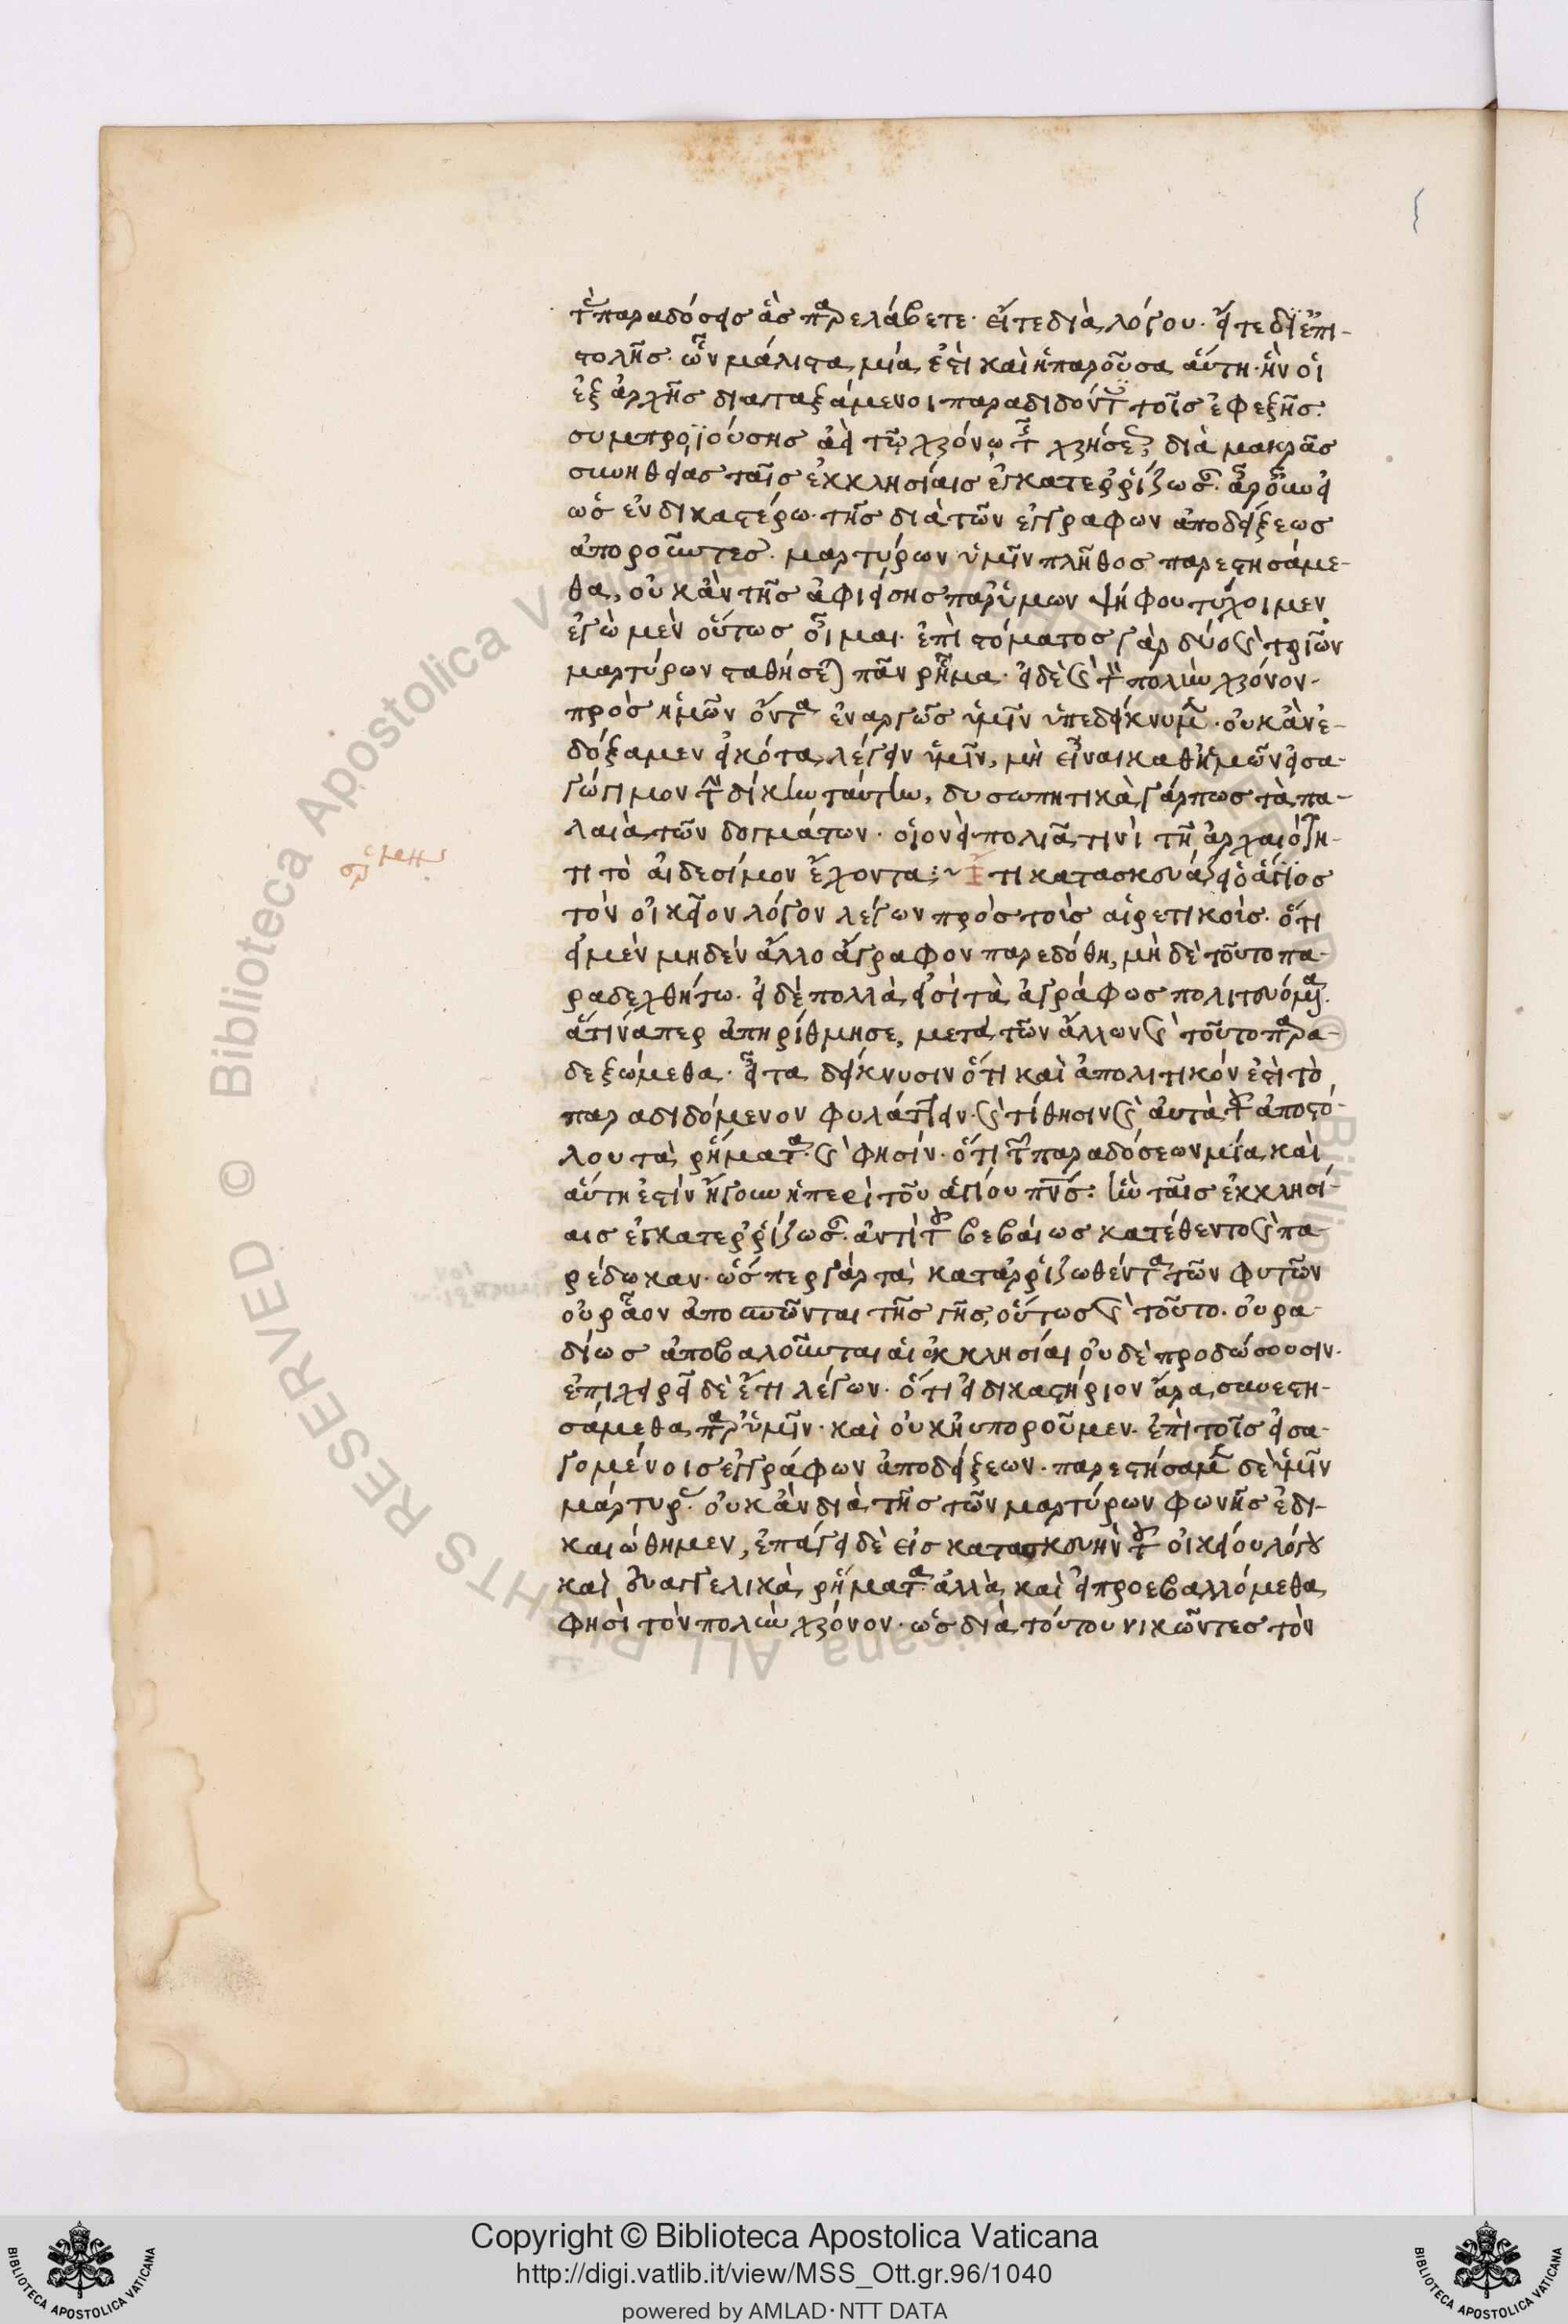 τὰς παραδόσεις ἃς παρελάβετε· εἴτε διὰ λόγου· εἴτε δι' ἐπι-
στολῆς· ὧν μάλιστα μία ἐστὶ καὶ ἡ παροῦσα αὕτη· ἣν οἱ
ἐξ ἀρχῆς διαταξάμενοι παραδιδόντες τοῖς ἐφεξῆς·
συμπροϊούσης ἀεὶ τῷ χρόνῳ τῆς χρήσεως, διὰ μακρᾶς
συνηθείας ταῖς ἐκκλησίαις ἐγκατερρίζωσαν· ἆρ' οὖν εἰ
ὡς ἐν δικαστηρίῳ· τῆς διὰ τῶν ἐγγράφων ἀποδείξεως
ἀποροῦντες· μαρτύρων ὑμῖν πλῆθος παρεστησάμε-
θα, οὐκ ἂν τῆς ἀφιείσης παρ' ὑμῶν ψήφου τύχοιμεν
ἐγὼ μὲν οὕτως οἶμαι· ἐπὶ στόματος γὰρ δύο καὶ τριῶν
μαρτύρων σταθήσεται πᾶν ῥῆμα· εἰ δὲ καὶ τὸν πολὺν χρόνον·
πρὸς ἡμῶν ὄντα ἐναργῶς ὑμῖν ὑπεδείκνυμεν· οὐκ ἂν ἐ-
δόξαμεν εἰκότα λέγειν ὑμῖν, μὴ εἶναι καθ' ἡμῶν εἰσα-
γώγιμον τὴν δίκην ταύτην, δυσωπητικὰ γάρ πως τὰ πα-
λαιὰ τῶν δογμάτων· οἱονεὶ πολιᾷ τινὶ τῇ ἀρχαιότη-
τι τὸ αἰδέσιμον ἔχοντα:~ Ἔτι κατασκευάζει ὁ ἅγιος
τὸν οἰκεῖον λόγον λέγων πρὸς τοὺς αἱρετικοὺς· ὅτι
εἰ μὲν μηδὲν ἄλλο ἄγραφον παρεδόθη, μὴ δὲ τοῦτο πα-
ραδεχθήτω· εἰ δὲ πολλὰ εἰσὶ τὰ ἀγράφως πολιτευόμενα·
ἅτινάπερ ἀπηρίθμησε, μετὰ τῶν ἄλλων καὶ τοῦτο παρα-
δεξώμεθα· εἶτα δείκνυσιν ὅτι καὶ ἀποστολικόν ἐστὶ τὸ
παραδιδόμενον φυλάττειν· καὶ τίθησιν καὶ αὐτὰ τοῦ ἀποστό-
λου τὰ ῥήματα· καὶ φησίν· ὅτι τῶν παραδόσεων μία καὶ
αὕτη ἐστίν ἤγουν ἡ περὶ τοῦ ἁγίου πνς· ἣν ταῖς ἐκκλησί-
αις ἐγκατερρίζωσαν· ἀντὶ τοῦ βεβαίως κατέθεντο καὶ πα-
ρέδωκαν· ὥσπερ γὰρ τὰ καταρριζωθέντα τῶν φυτῶν
οὐ ῥᾷον ἀποσπῶνται τῆς γῆς, οὕτως καὶ τοῦτο· οὐ ρα-
δίως ἀποβαλοῦνται αἱ ἐκκλησίαι οὐδὲ προδώσουσιν·
ἐπιχειρεῖ δὲ ἔτι λέγων· ὅτι εἰ δικαστήριον ἄρα συνεστη-
σάμεθα παρ' ὑμῖν· καὶ οὐκ ηὐποροῦμεν· ἐπὶ τοῖς εἰσα-
γομένοις ἐγγράφων ἀποδείξεων· παρεστήσαμεν δὲ ὑμῖν
μάρτυρας· οὐκ ἂν διὰ τῆς τῶν μαρτύρων φωνῆς ἐδι-
καιώθημεν, ἐπάγει δὲ εἰς κατασκευὴν τοῦ οἰκείου λόγου
καὶ εὐαγγελικὰ ῥήματα· ἀλλὰ καὶ εἰ προεβαλλόμεθα
φησὶ τὸν πολὺν χρόνον· ὡς διὰ τούτου νικῶντες τὸν
Copyright © Biblioteca Apostolica Vaticana
http://digi.vatlib.it/view/MSS_Ott.gr.96/1040
powered by AMLAD·NTT DATA